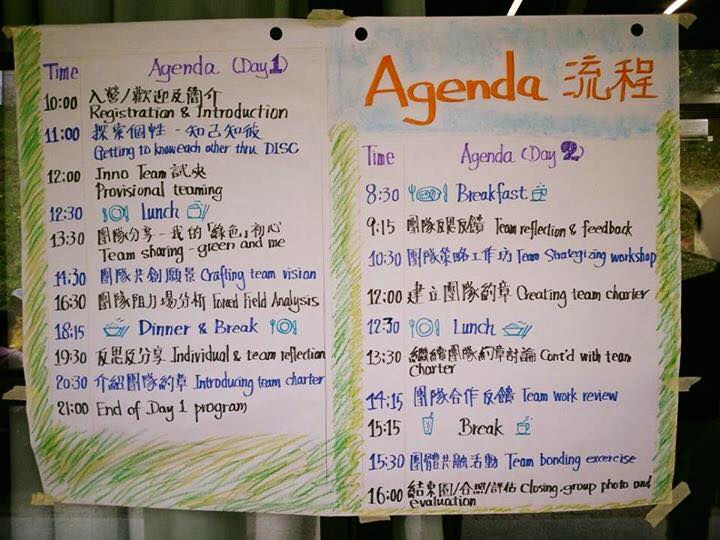 Time Agenda (Day 1)
10:00 入營/歡迎及簡介
Registration & Introduction
11:00 探索個性 - 知己知彼
Getting to know each other thru DISC
12:00 Inno Team 試夾
Provisional teaming
12:30 Lunch
13:30 團隊分享 - 我的「綠色」初心
Team sharing - green and me
14:30 團隊共創願景 Crafting team vision
16:30 團隊阻力場分析 Forced Field Analysis
18:15 Dinner & Break
19:30 反思及分享 Individual & team reflection
20:30 介紹團隊約章 Introducing team charter
21:00 End of Day 1 program
Agenda 流程
Time Agenda (Day 2)
8:30 Breakfast
9:15 團隊反思反饋 Team reflection & feedback
10:30 團隊策略工作坊 Team Strategizing workshop
12:00 建立團隊約章 Creating team charter
12:30 Lunch
13:30 繼續團隊約章討論 Cont'd with team
charter
14:15 團隊合作反饋 Team work review
15:15 Break
15:30 團體共融活動 Team bonding excercise
16:00 結束圈/合照/評估 Closing, group photo and
evaluation